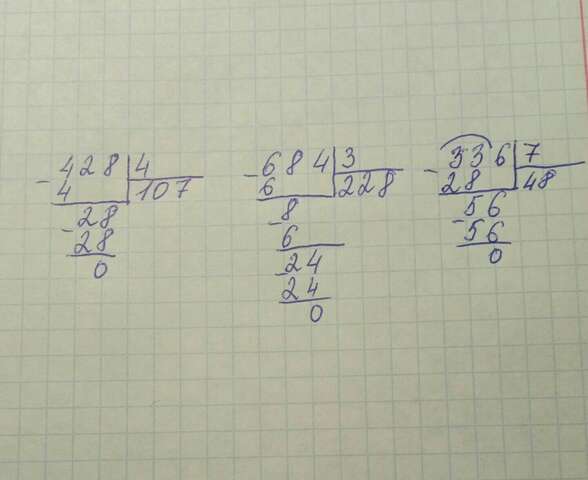 428 4
- 4 107
- 28
28
0
684 3
- 6 228
- 8
6
- 24
24
0
336 7
- 28 48
- 56
56
0